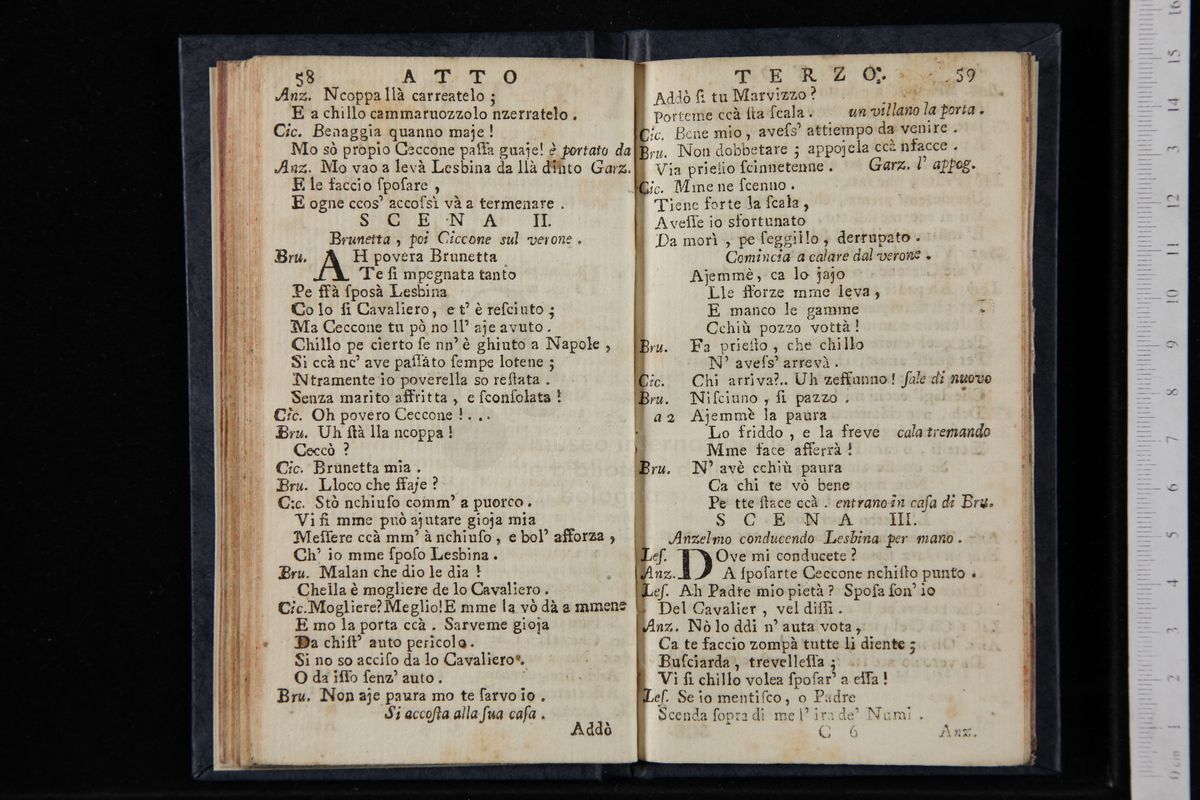 58 ATTO
Anz. Ncoppa llà carreatelo ;
E a chillo cammaruozzolo nzerratelo .
Cic. Benaggia quanno maje !
Mo sò propio Ceccone paſſa guaje! è portato da
Anz. Mo vao a levà Lesbina da llà dinto Garz.
E le faccio ſpoſare ,
E ogne ccos' accoſsì và a termenare .
SCENA II.
Brunetta , poi Ciccone sul verone .
Bru. AH povera Brunetta
Te ſi mpegnata tanto
Pe ffà ſposà Lesbina
Co lo ſi Cavaliero, e t' è reſciuto ;
Ma Ceccone tu pò no ll' aje avuto .
Chillo pe cierto ſe nn' è ghiuto a Napole ,
Si ccà nc' ave paſſato ſempe lotene ;
Ntramente io poverella so reſtata .
Senza marito affritta , e ſconſolata !
Cic. Oh povero Ceccone ! . . .
Bru. Uh ſtà lla ncoppa !
Ceccò ?
Cic. Brunetta mia .
Bru. Lloco che ffaje ?
Cic. Stò nchiuſo comm' a puorco .
Vi ſi mme può ajutare gioja mia
Meſſere ccà mm' à nchiuſo , e bol' afforza ,
Ch' io mme ſpoſo Lesbina .
Bru. Malan che dio le dia !
Cheſta è mogliere de lo Cavaliero .
Cic. Mogliere? Meglio! E mme la vò dà a mmene
E mo la porta ccà . Sarveme gioja
Da chiſt' auto pericolo .
Si no so acciſo da lo Cavaliero .
O da iſſo ſenz' auto .
Bru. Non aje paura mo te ſarvo io .
Si accoſta alla ſua caſa .
Addò
TERZO. 59
Addò ſi tu Marvizzo ?
Porteme ccà ſta ſcala . un villano la porta .
Cic. Bene mio , aveſs' attiempo da venire .
Bru. Non dobbetare ; appojela ccà nfacce .
Via prieſto ſcinnetenne . Garz. l' appog.
Cic. Mme ne ſcenno .
Tiene forte la ſcala ,
Aveſſe io sfortunato
Da morì , pe ſeggillo , derrupato .
Comincia a calare dal verone .
Ajemmè, ca lo jajo
Lle fforze mme leva ,
E manco le gamme
Cchiù pozzo vottà !
Bru. Fa prieſto , che chillo
N' aveſs' arrevà .
Cic. Chi arriva?.. Uh zeffunno! ſale di nuovo
Bru. Niſciuno , ſi pazzo .
a 2 Ajemmè la paura
Lo friddo , e la freve cala tremando
Mme face afferrà !
Bru. N' avè cchiù paura
Ca chi te vò bene
Pe tte ſtace ccà . entrano in caſa di Bru.
SCENA III.
Anzelmo conducendo Lesbina per mano .
Leſ. DOve mi conducete ?
Anz. A ſpoſarte Ceccone nchiſto punto .
Leſ. Ah Padre mio pietà ? Spoſa ſon' io
Del Cavalier , vel diſſi .
Anz. Nò lo ddi n' auta vota ,
Ca te faccio zompà tutte li diente ;
Buſciarda , trevelleſſa ;
Vi ſi chillo volea ſpoſar' a eſſa !
Leſ. Se io mentiſco , o Padre
Scenda ſopra di me l' ira de' Numi .
C 6 Anz.